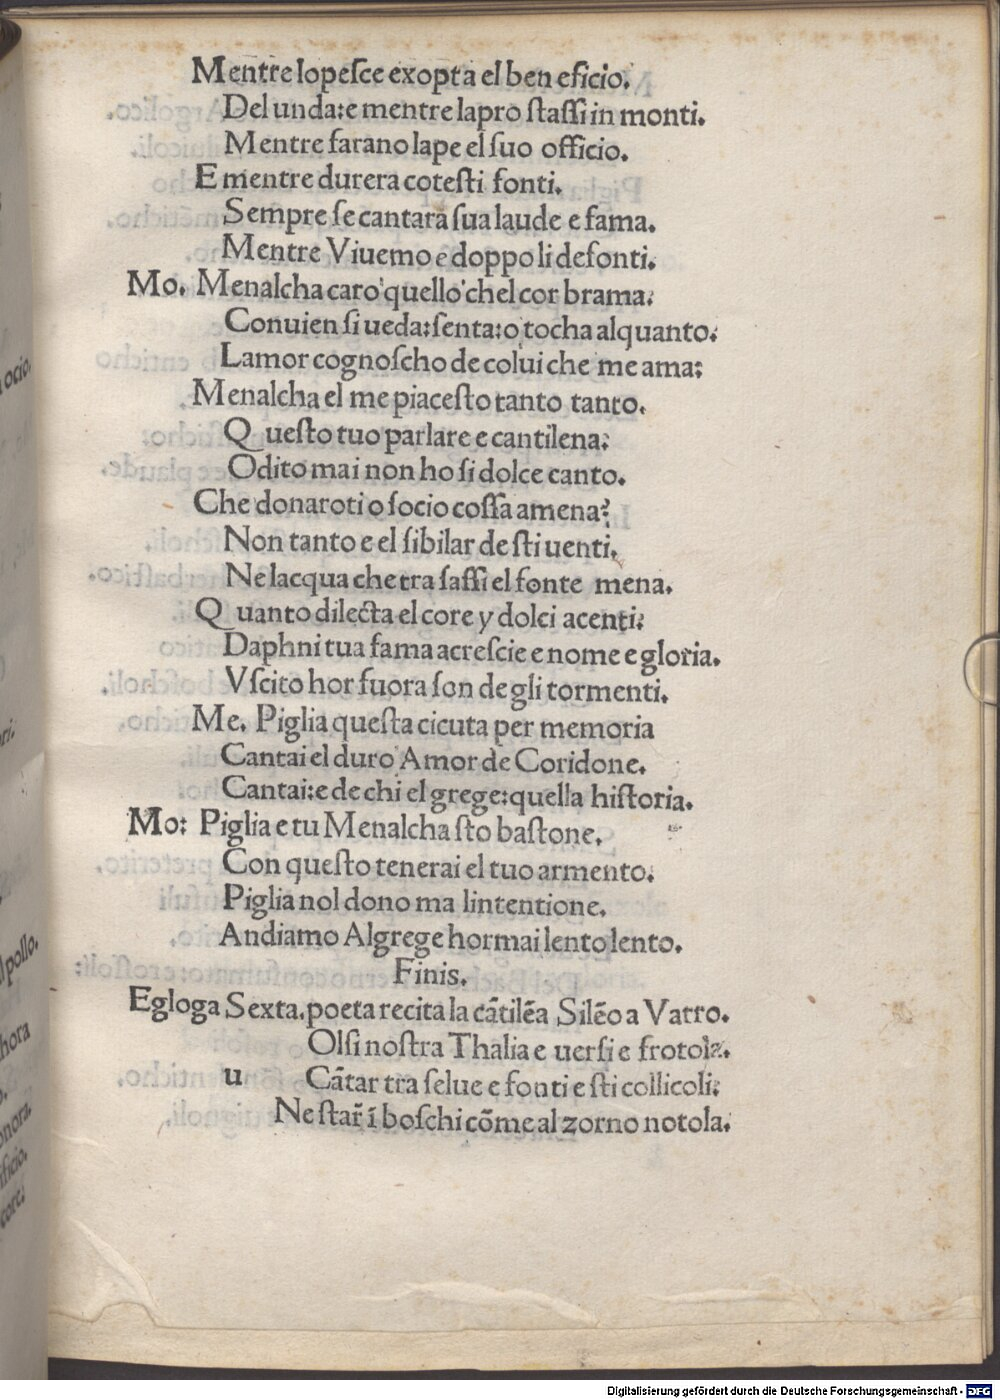 Mentre lo peſce exopta el ben eficio.
Del unda:e mentre lapro ſtaſſi in monti.
Mentre farano lape el ſuo officio.
E mentre durera coteſti fonti.
Sempre ſe cantara ſua laude e fama.
Mentre Viuemo e doppo li defonti.
Mo. Menalcha caro quello chel cor brama:
Conuien ſi ueda:ſenta:o tocha alquanto:
Lamor cognoſcho de colui che me ama:
Menalcha el me piaceſto tanto tanto.
Queſto tuo parlare e cantilena:
Odito mai non ho ſi dolce canto.
Che donaroti o ſocio coſſa amena?
Non tanto e el ſibilar de ſti uenti.
Ne lacqua che tra ſaſſi el fonte mena.
Quanto dilecta el core y dolci acenti:
Daphni tua fama acreſcie e nome e gloria.
Vſcito hor fuora ſon de gli tormenti.
Me. Piglia queſta cicuta per memoria
Cantai el duro Amor de Coridone.
Cantai:e de chi el grege:quella hiſtoria.
Mo: Piglia e tu Menalcha ſto baſtone.
Con queſto tenerai el tuo armento.
Piglia nol dono ma lintentione.
Andiamo Al grege hormai lento lento.
Finis.
Egloga Sexta.poeta recita la cãtilẽa Silẽo a Varro.
Olſi noſtra Thalia e uerſi e frotola.
u Cãtar tra ſelue e fonti e ſti collicoli:
Ne ſtar̃ ĩ boſchi cõme al zorno notola.
Digitalisierung gefördert durch die Deutsche Forschungsgemeinschaft - DFG